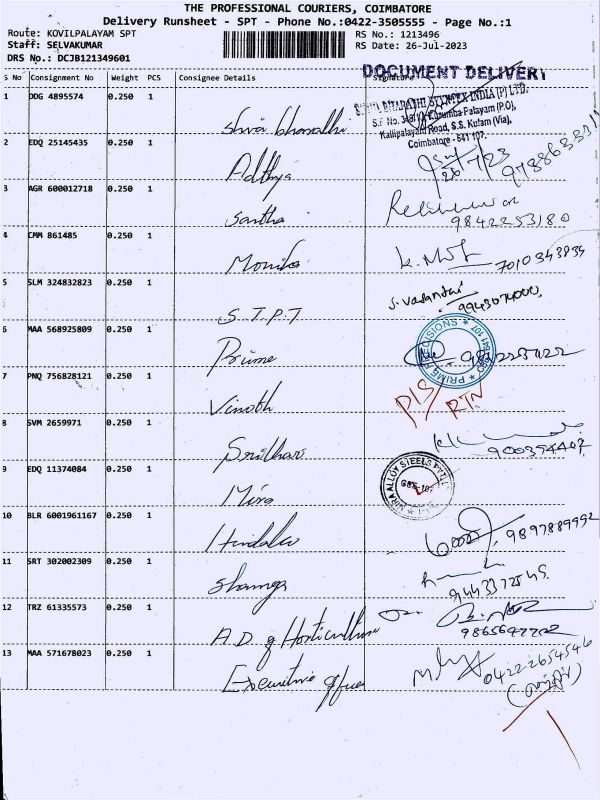 THE PROFESSIONAL COURIERS, COIMBATORE
Delivery Runsheet - SPT - Phone No.:0422-3505555 - Page No.:1
Route: KOVILPALAYAM SPT
RS No.: 1213496
Staff: SELVAKUMAR
RS Date: 26-Jul-2023
DRS No.: DCJB121349601
DOCUMENT DELIVERY
S No Consignment No Weight PCS Consignee Details Signature
1 DDG 4895574 0.250 1 Shivai bharathi
BHARATHI INDIA (P) LTD,
Kurumba Palayam (P.O),
Kalipalayam Road, S.S. Kulam (Via),
Coimbatore - 641 107.
2 EDQ 25145435 0.250 1 Adthya
3 AGR 600012718 0.250 1 Santha 9842253180
4 CMM 861485 0.250 1 Monika 7010343834
5 SLM 324832823 0.250 1 S.T.P.T S. Vasanthi
6 MAA 568925809 0.250 1 Prime
PRIME PRECISIONS
7 PNQ 756828121 0.250 1 Vinoth PIS/ RTN
8 SVM 2659971 0.250 1 Sridhar
9 EDQ 11374084 0.250 1 Mira
ALLOY STEELS
10 BLR 6001961167 0.250 1 9897889992
11 SRT 302002309 0.250 1
12 TRZ 61335573 0.250 1 A.D of Horticulture
13 MAA 571678023 0.250 1 Executive officer 0422-2654546